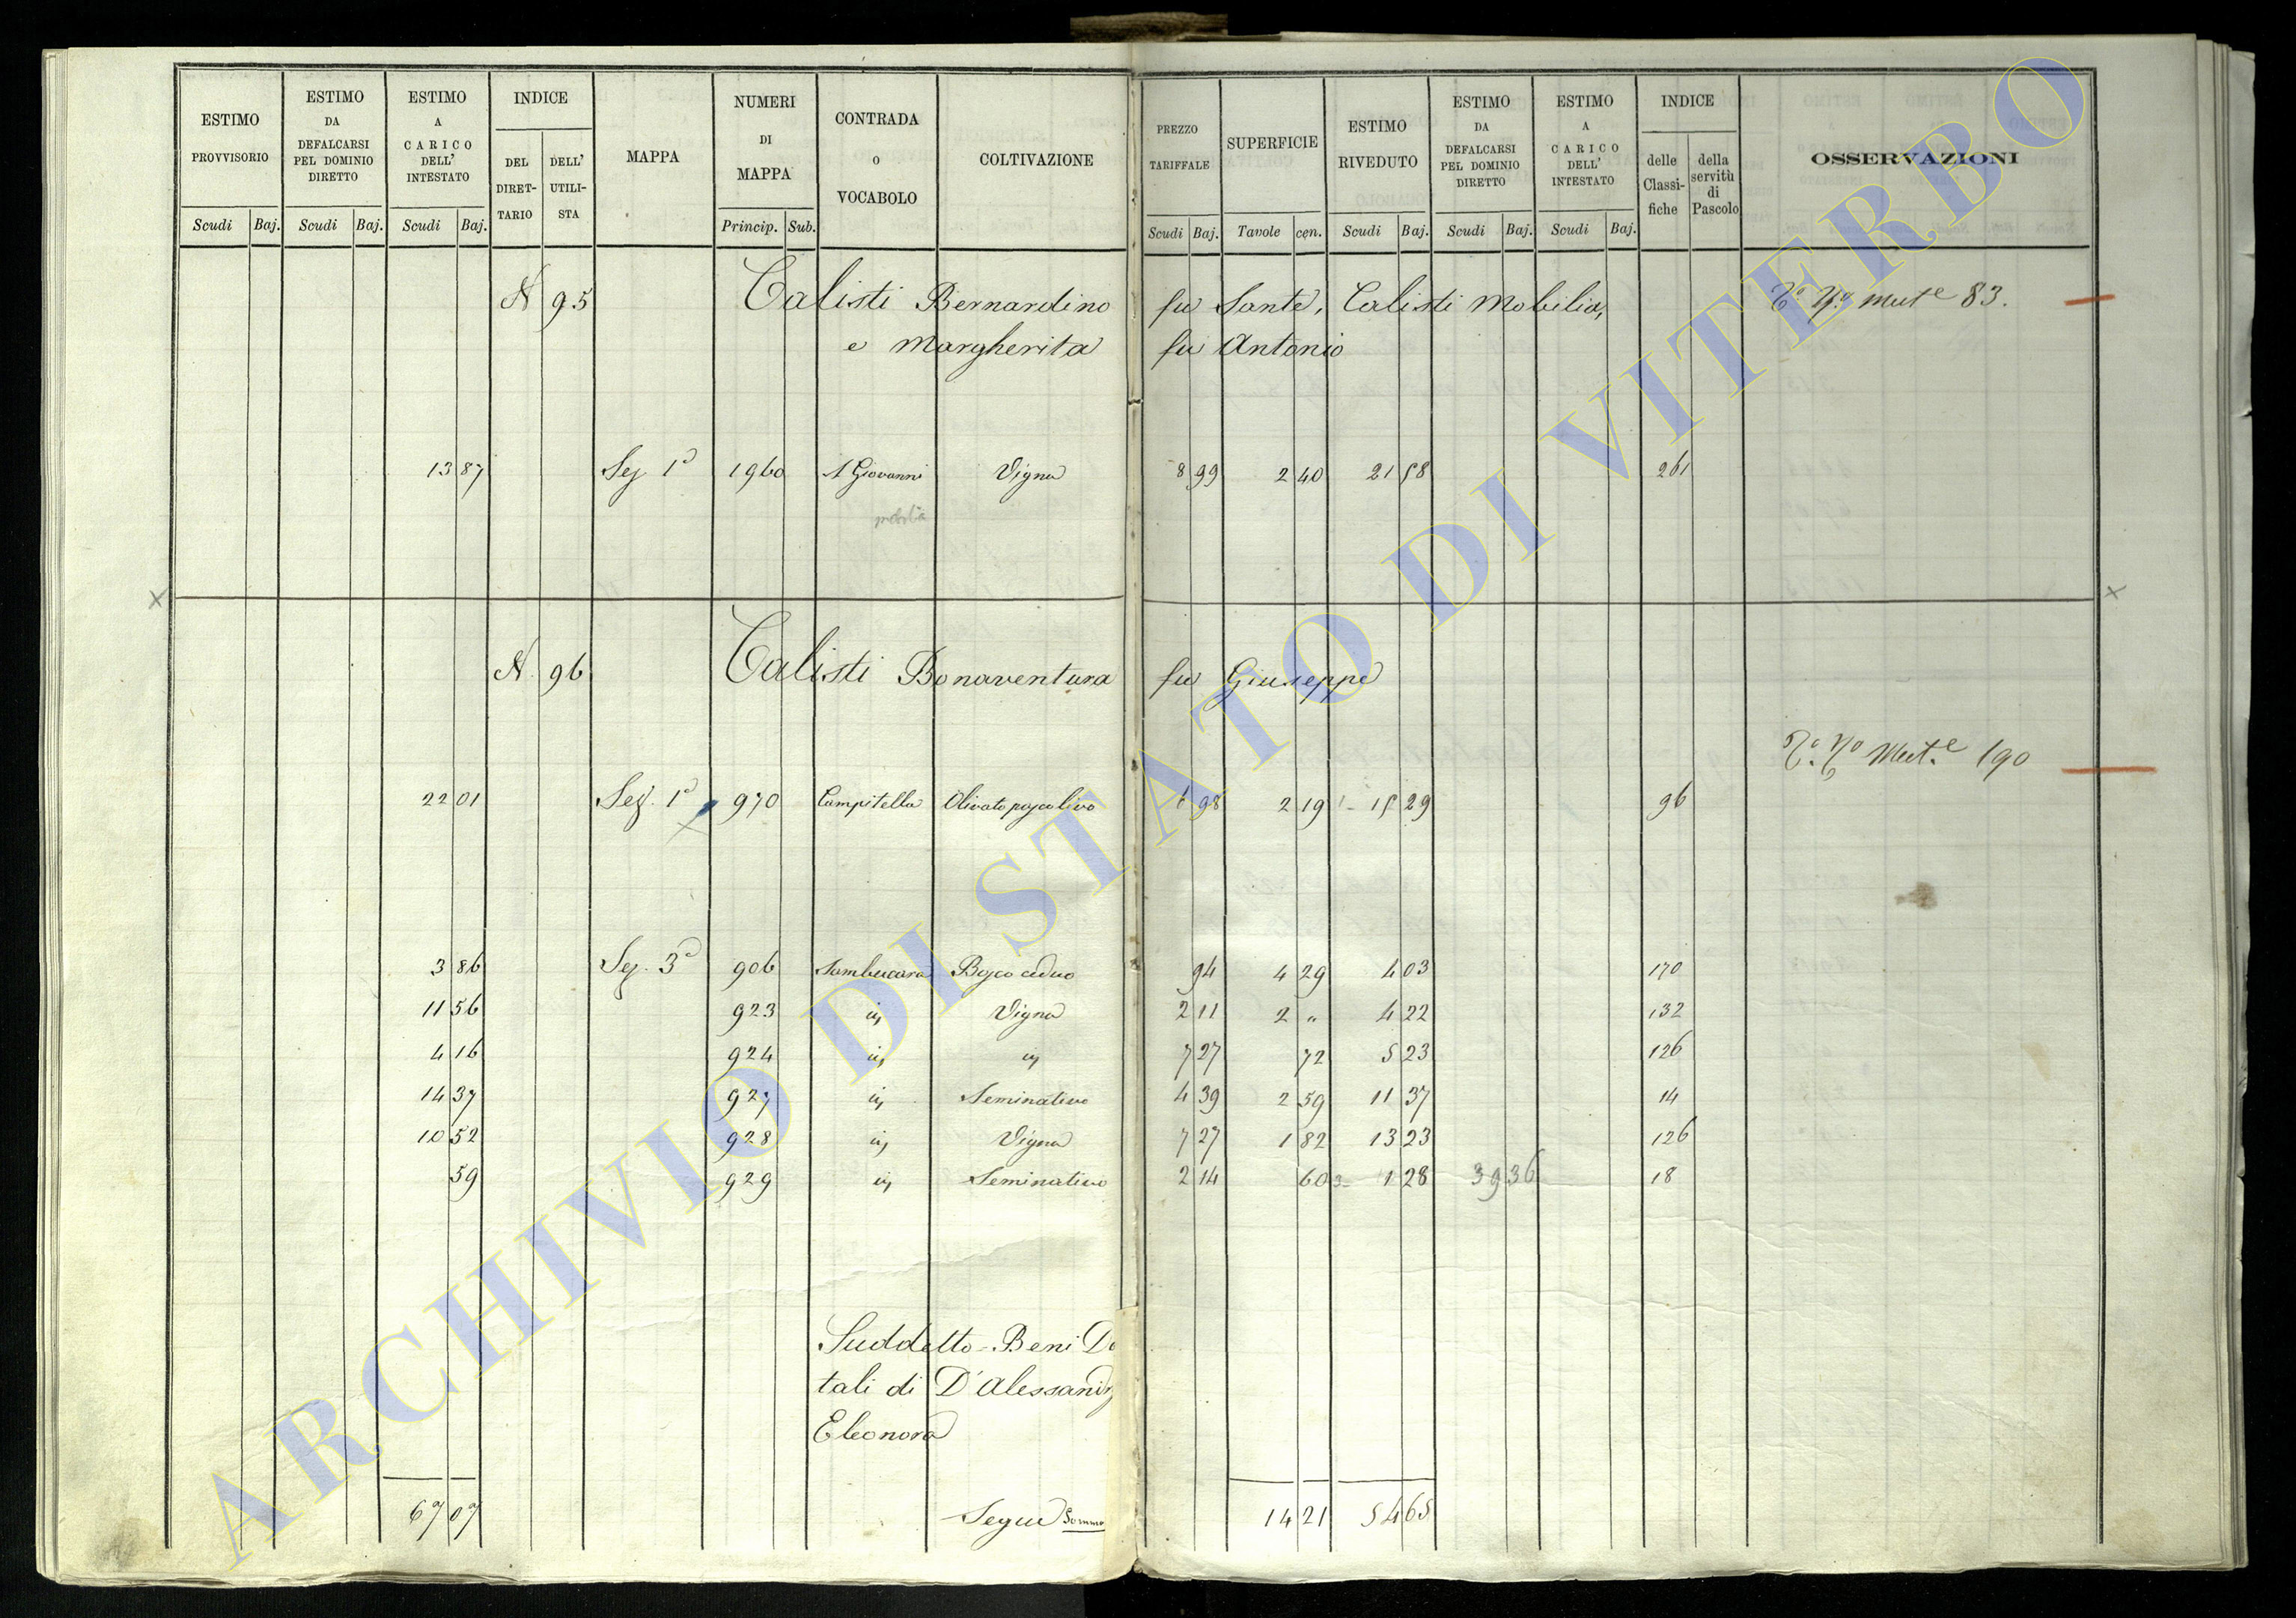 ESTIMO PROVVISORIO | ESTIMO DA DEFALCARSI PEL DOMINIO DIRETTO | ESTIMO A CARICO DELL' INTESTATO | INDICE | MAPPA | NUMERI DI MAPPA | CONTRADA O VOCABOLO | COLTIVAZIONE | PREZZO TARIFFALE | SUPERFICIE | ESTIMO RIVEDUTO | ESTIMO DA DEFALCARSI PEL DOMINIO DIRETTO | ESTIMO A CARICO DELL' INTESTATO | INDICE | OSSERVAZIONI
DEL DIRET-TARIO | DELL' UTILI-STA | delle Classi-fiche | della servitù di Pascolo
Scudi | Baj. | Scudi | Baj. | Scudi | Baj. | Princip. | Sub. | Scudi | Baj. | Tavole | cen. | Scudi | Baj. | Scudi | Baj. | Scudi | Baj.
N 95 Calisti Bernardino fu Sante, Calisti Mobilia, Mut.e 83.
e Margherita fu Antonio
13 87 Sez 1a 1960 S Giovanni Vigna 8 99 2 40 21 58 261
mobilia
N. 96 Calisti Bonaventura fu Giuseppe
Mut.e 190
22 01 Sez. 1a 970 Campitella Olivato pascolivo 6 98 2 19 15 29 96
3 86 Sez. 3a 906 Sambucara Bosco ceduo 94 4 29 4 03 170
11 56 923 id Vigna 2 11 2 " 4 22 132
4 16 924 id id 7 27 72 5 23 126
14 37 927 id Seminativo 4 39 2 59 11 37 14
10 52 928 id Vigna 7 27 1 82 13 23 126
59 929 id Seminativo 2 14 60 1 28 39 36 18
Suddetto - Beni Do
tali di D'Alessandr
Eleonora
67 07 Segue Somma 14 21 54 65
ARCHIVIO DI STATO DI VITERBO